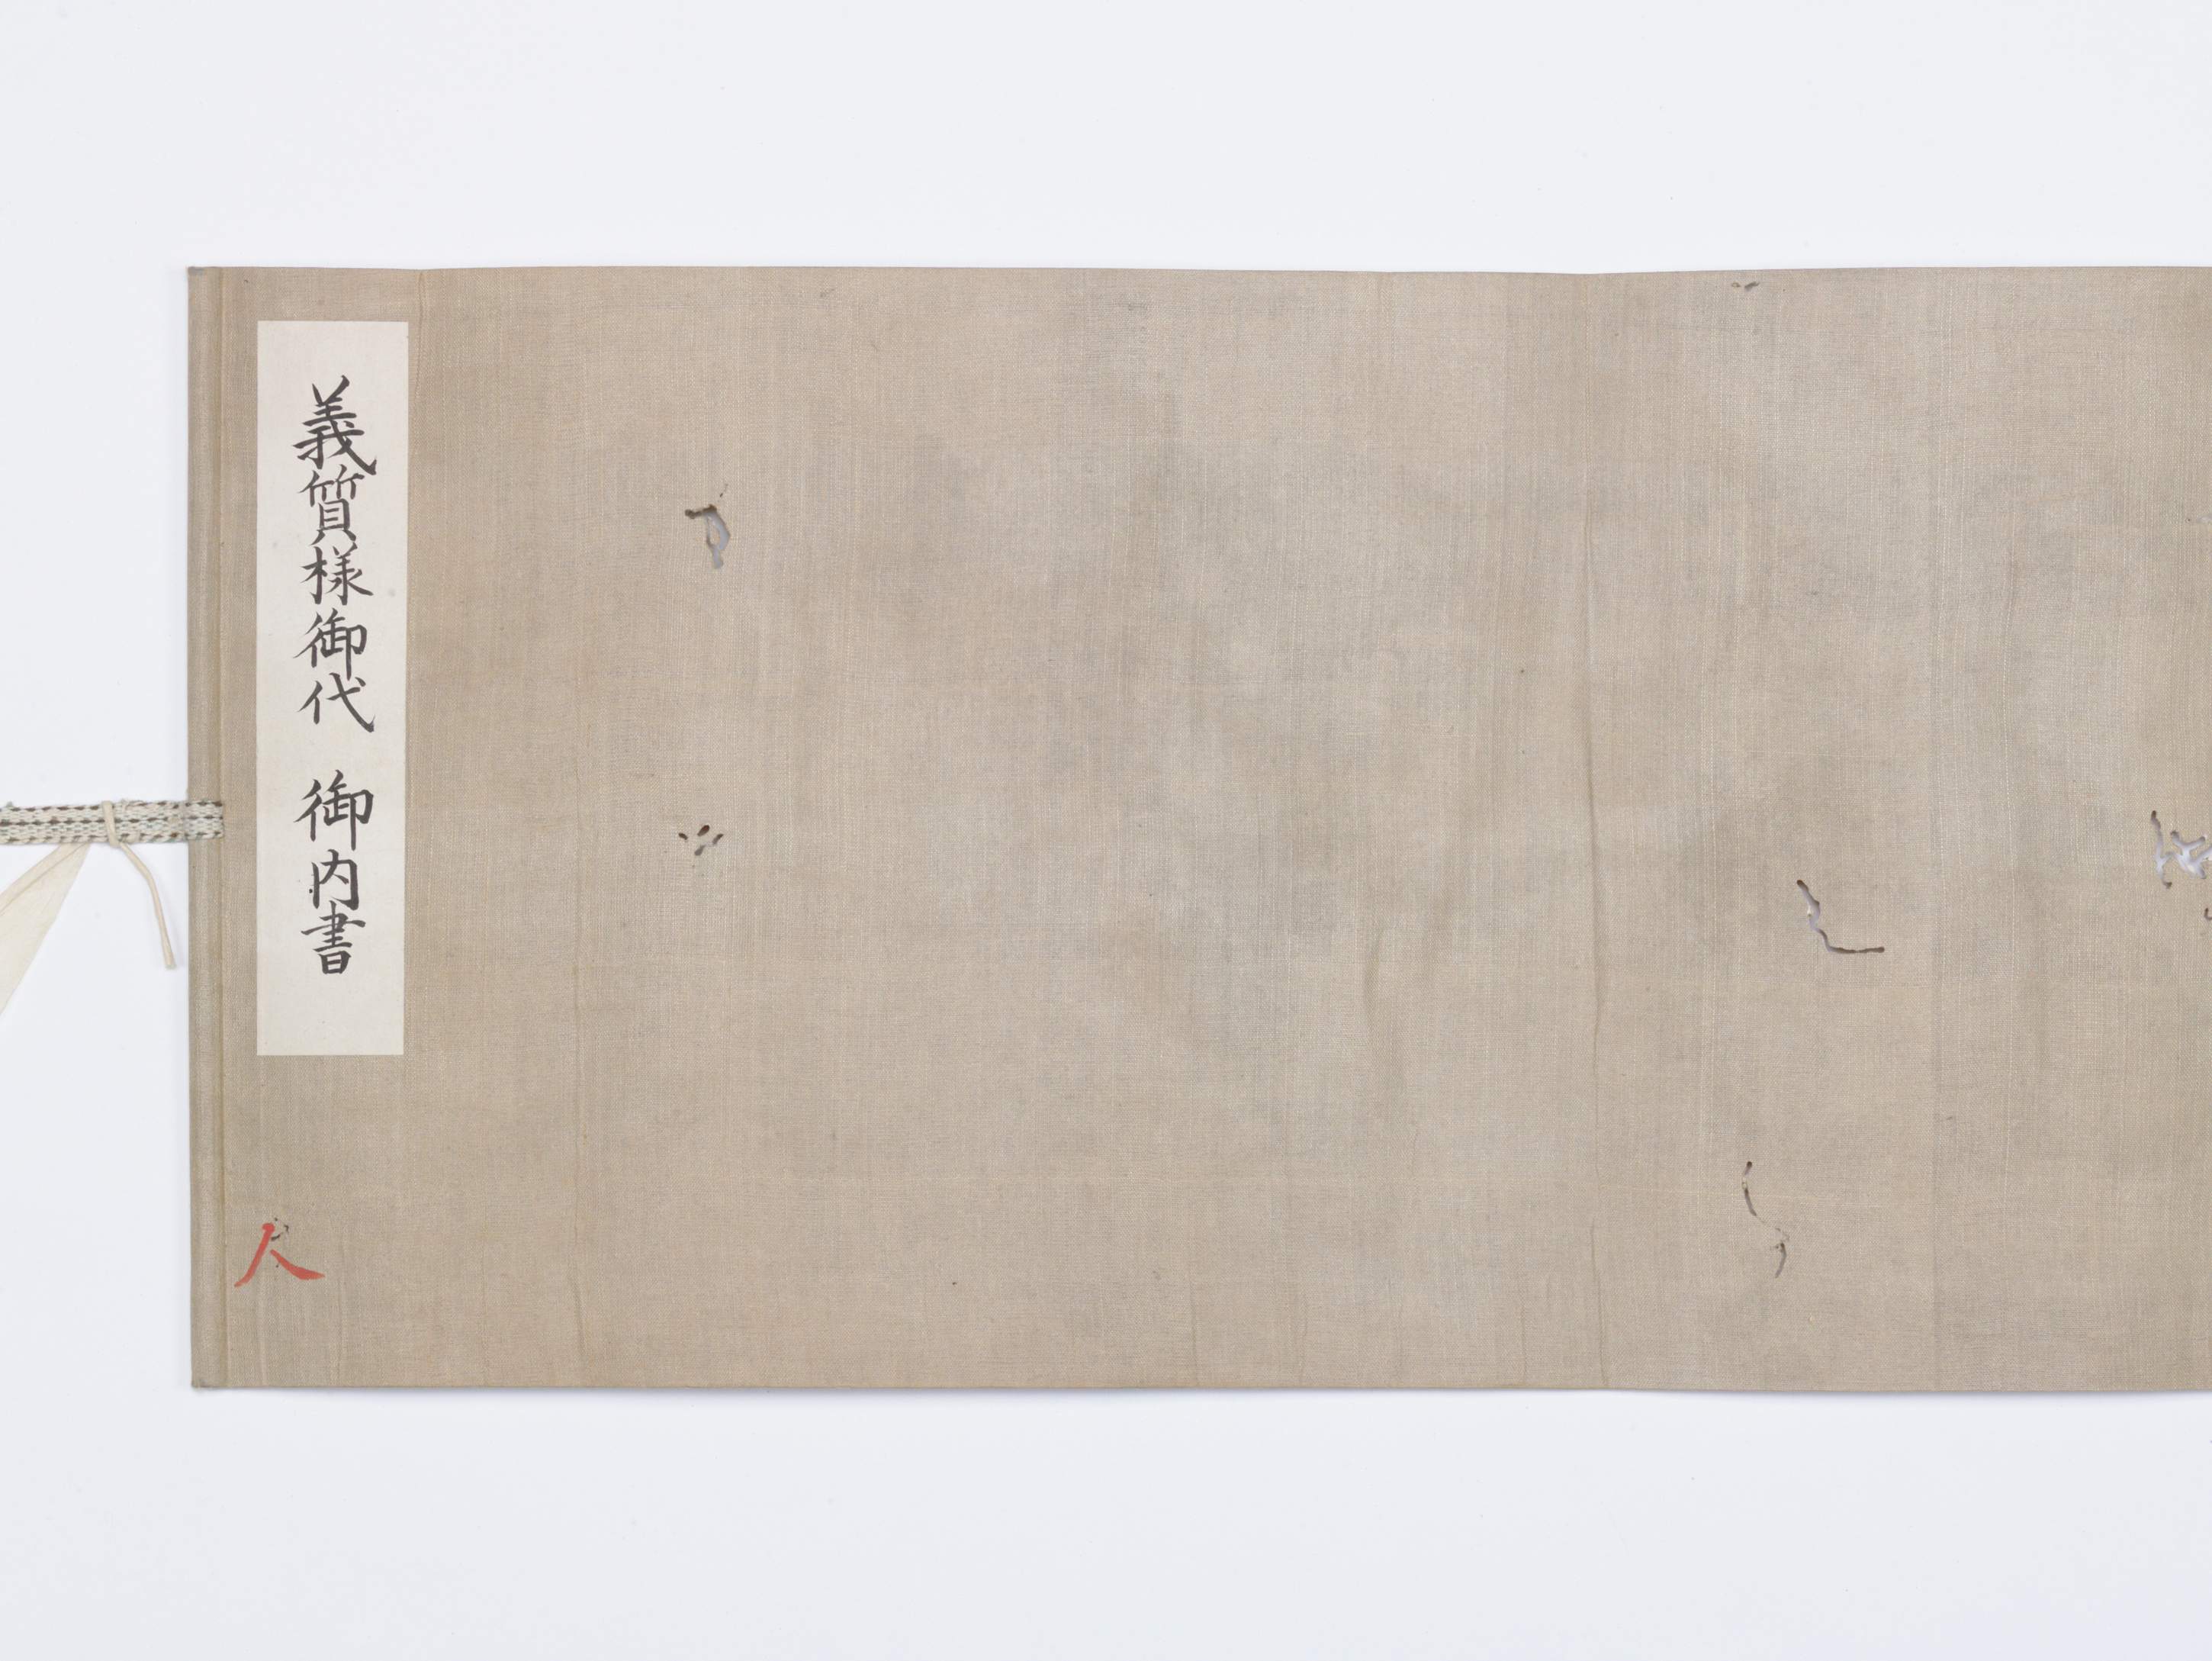 義質様御代　御内書
人